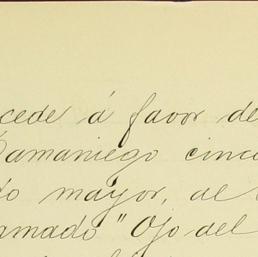 cede á favor de
Samaniego cinc
do mayor, al
amado "Ojo del